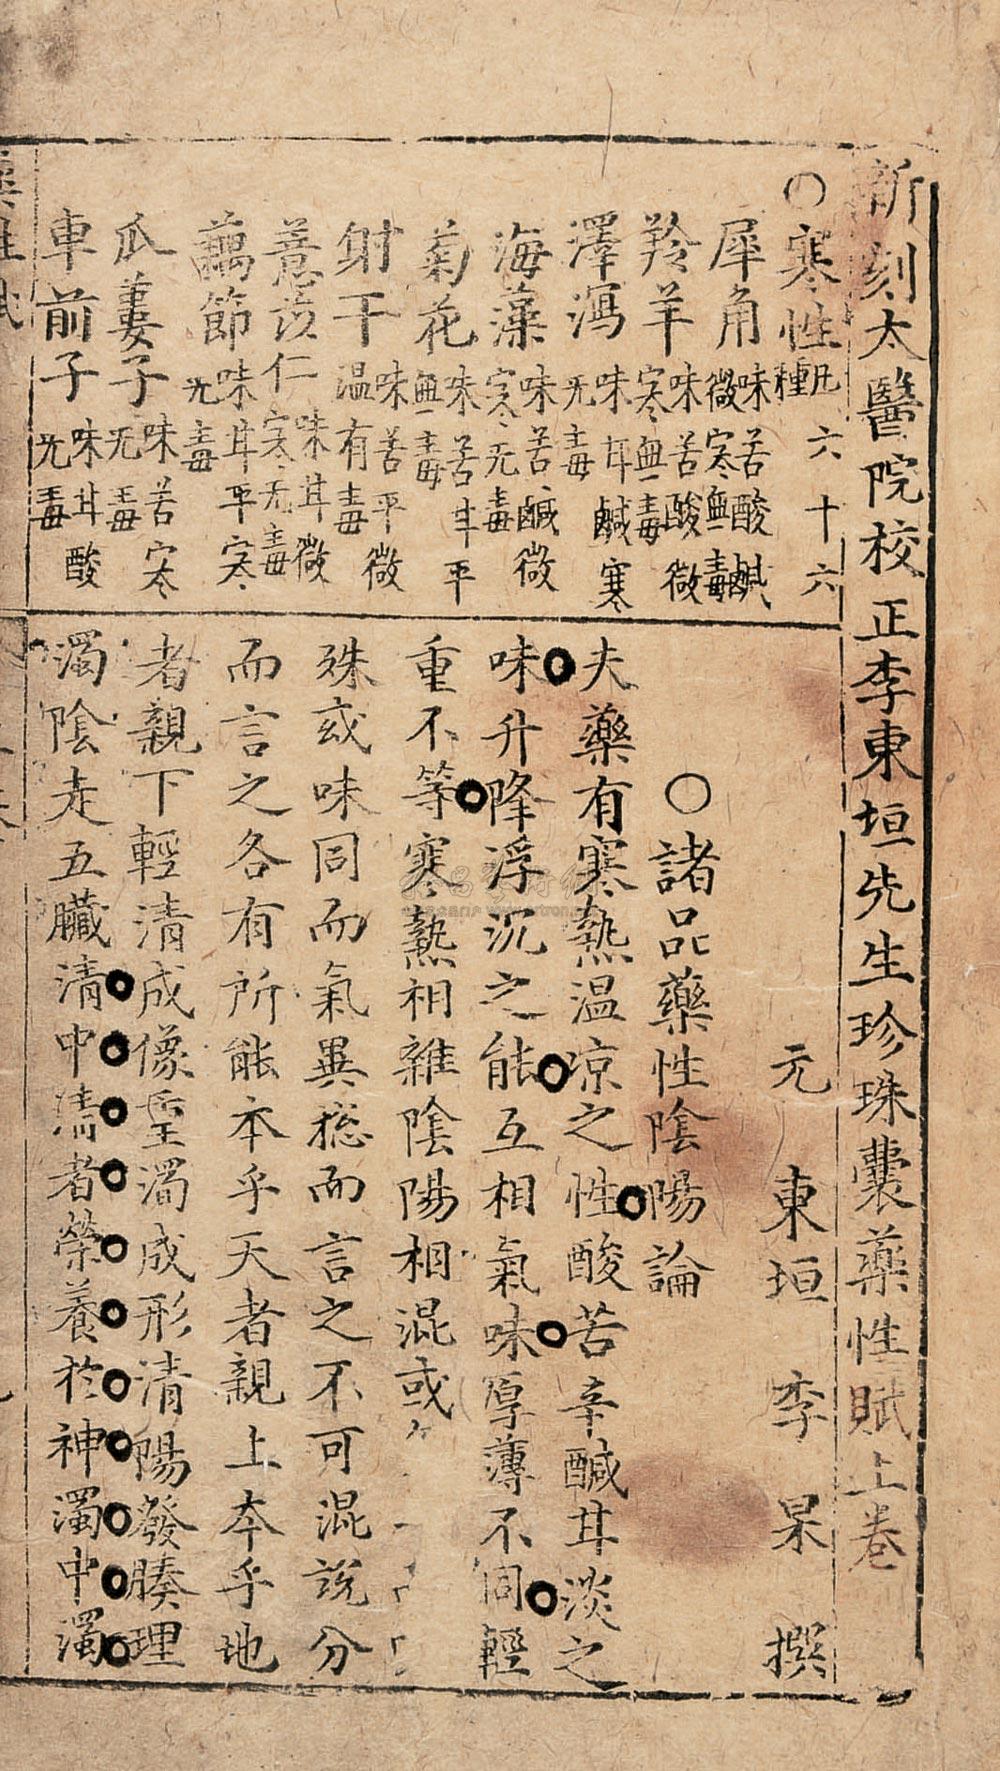 新刻太醫院校正李東垣先生珍珠囊藥性賦上卷
○寒性凡六十六種
犀角味苦酸鹹微寒無毒
羚羊味苦酸微寒無毒
澤瀉味甘鹹寒无毒
海藻味苦鹹微寒无毒
菊花味苦甘平無毒
射干味苦平微温有毒
薏苡仁味甘微寒无毒
藕節味甘平寒无毒
瓜蔞子味苦寒无毒
車前子味甘酸无毒
元東垣李杲撰
○諸品藥性陰陽論
夫藥有寒熱温凉之性酸苦辛鹹甘淡之
味升降浮沉之能互相氣味厚薄不同輕
重不等寒熱相雜陰陽相混或
殊或味同而氣異総而言之不可混說分
而言之各有所能本乎天者親上本乎地
者親下輕清成像重濁成形清陽發腠理
濁陰走五臟清中清者榮養於神濁中濁